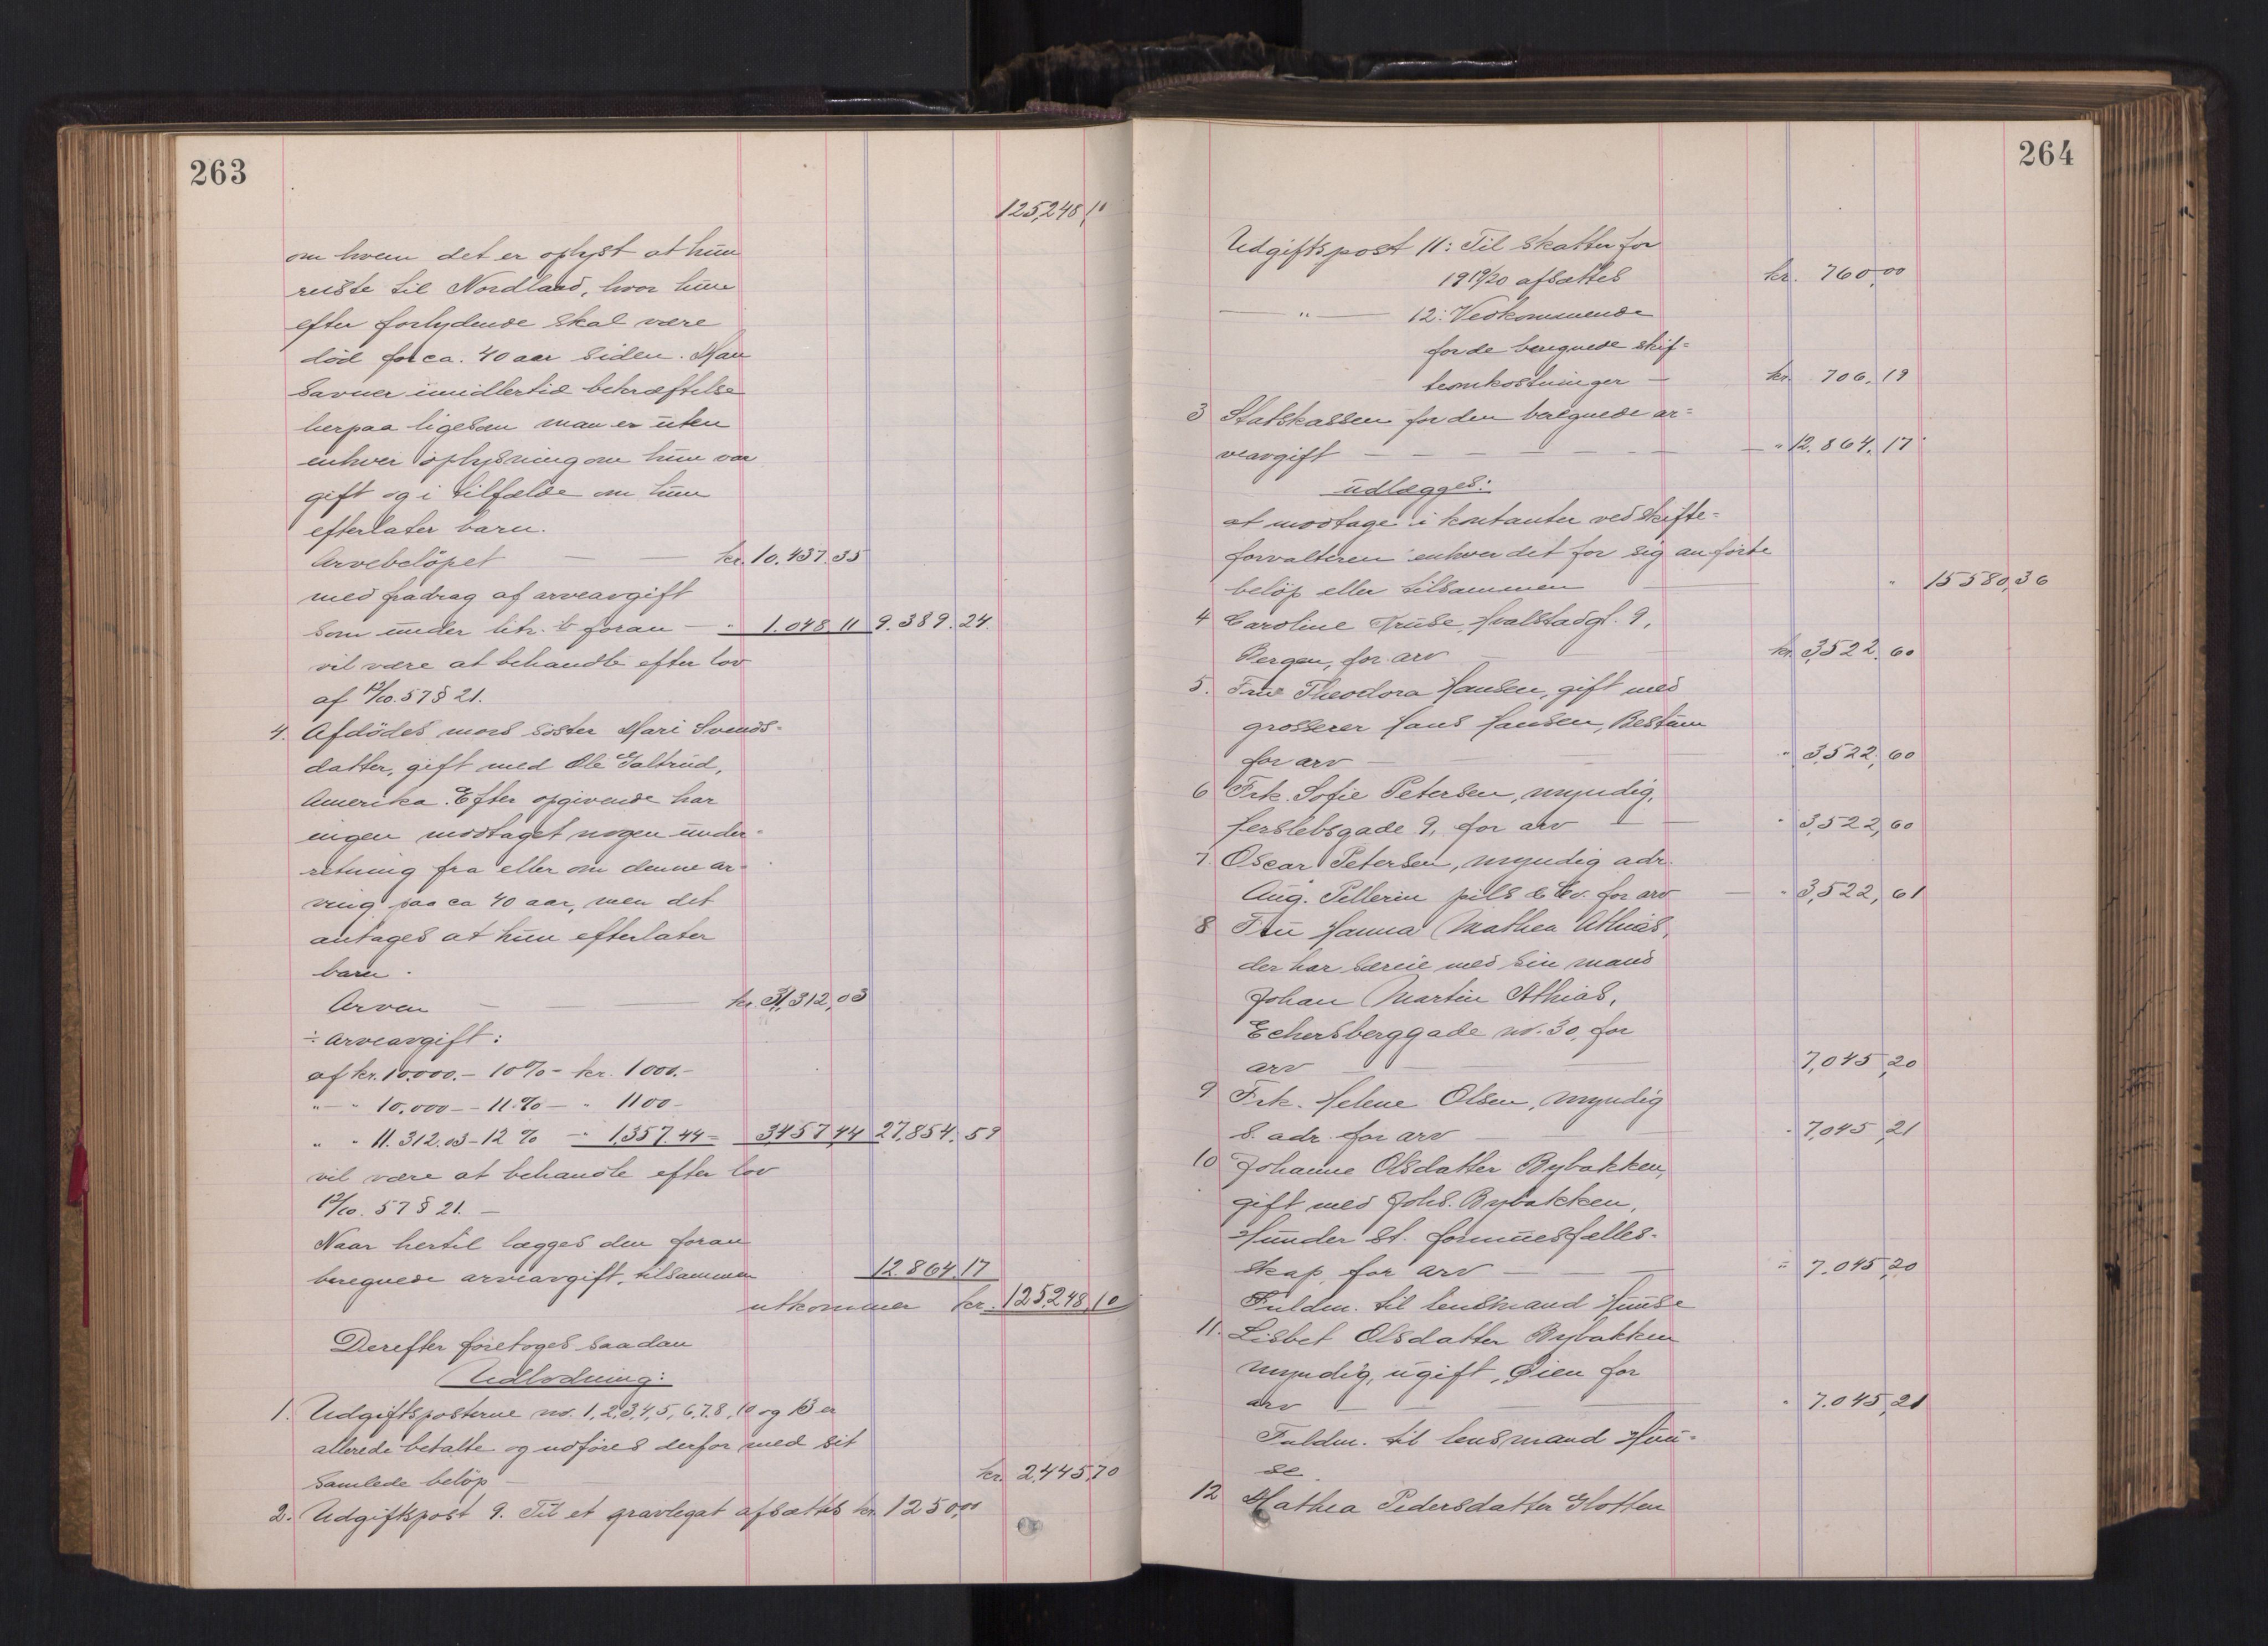 263
125,248,10
om hvem det er oplyst at hun
reiste til Nordland, hvor hun
efter forlydende skal være
död for ca. 40 aar siden. Man
savner imidlertid bekræftelse
herpaa ligesom man er uten
enhver oplysning om hun var
gift og i tilfælde om hun
efterlater barn.
Arvebelöpet — — kr. 10.437.35
med fradrag af arveavgift
som under litr. b foran — " 1.048 11 9.389.24.
vil være at behandle efter lov
af 12/10. 57 § 21.
4. Afdödes mors söster Mari Svends-
datter, gift med Ole Galtrud,
Amerika. Efter opgivende har
ingen modtaget nogen under-
retning fra eller om denne ar-
ving paa ca 40 aar, men det
antages at hun efterlater
barn.
Arven — — kr. 31,312,03
÷ arveavgift:
af kr. 10.000.- 10% - kr. 1000.-
" - " 10.000 - - 11.% - " 1100 -
" " 11.312.03 - 12 % - " 1,357.44 = 3457,44 27,854.59
vil være at behandle efter lov
12/10. 57 § 21. —
Naar hertil lægges den foran
beregnede arveavgift, tilsammen 12.864.17
utkommer kr. 125,248,10
Derefter foretoges saadan
Udlodning:
1. Udgiftsposterne no. 1, 2, 3, 4, 5, 6, 7, 8, 10 og 13 er
allerede betalte og udföres derfor med sit
samlede belöp — kr. 2,445,70
2. Udgiftspost 9. Til et gravlegat afsættes kr. 1250,00
264
Udgiftspost 11: Til skatter for
1919/20 afsættes kr. 760,00
— " — 12: Vedkommende
for de beregnede skif-
teomkostninger — kr. 706,19
3 Statskassen for den beregnede ar-
veavgift — — — — — " 12.864.17
udlægges:
at modtage i kontanter ved skifte-
forvalteren enhver det for sig anförte
belöp eller tilsammen — " 15580,36
4 Caroline Truse, Hvalstadgt. 9,
Bergen, for arv — — kr. 3,522.60
5. Fru Theodora Hansen, gift med
grosserer Hans Hansen, Bestum
for arv — — — " 3,522,60
6 Frk. Sofie Petersen, myndig,
Herslebsgade 9, for arv — — " 3,522,60
7. Oscar Petersen, myndig adr.
Aug. Pellerin fils & Co. for arv — " 3,522,61
8 Fru Hanna Mathea Athias,
der har særeie med sin mand
Johan Martin Athias,
Eckersberggade no. 30, for
arv — — — 7,045,20
9 Frk. Helene Olsen, myndig
s. adr. for arv — — " 7,045,21
10 Johanne Olsdatter Bybakken,
gift med Johs. Bybakken,
Hunder st. formuesfælles-
skap, for arv — — — " 7.045,20
Fuldm. til lensmand Huuse
11. Lisbet Olsdatter Bybakken
myndig, ugift, Öien for
arv — — " 7.045,21
Fuldm. til lensmand Huu-
se.
12 Mathea Pedersdatter Slotten